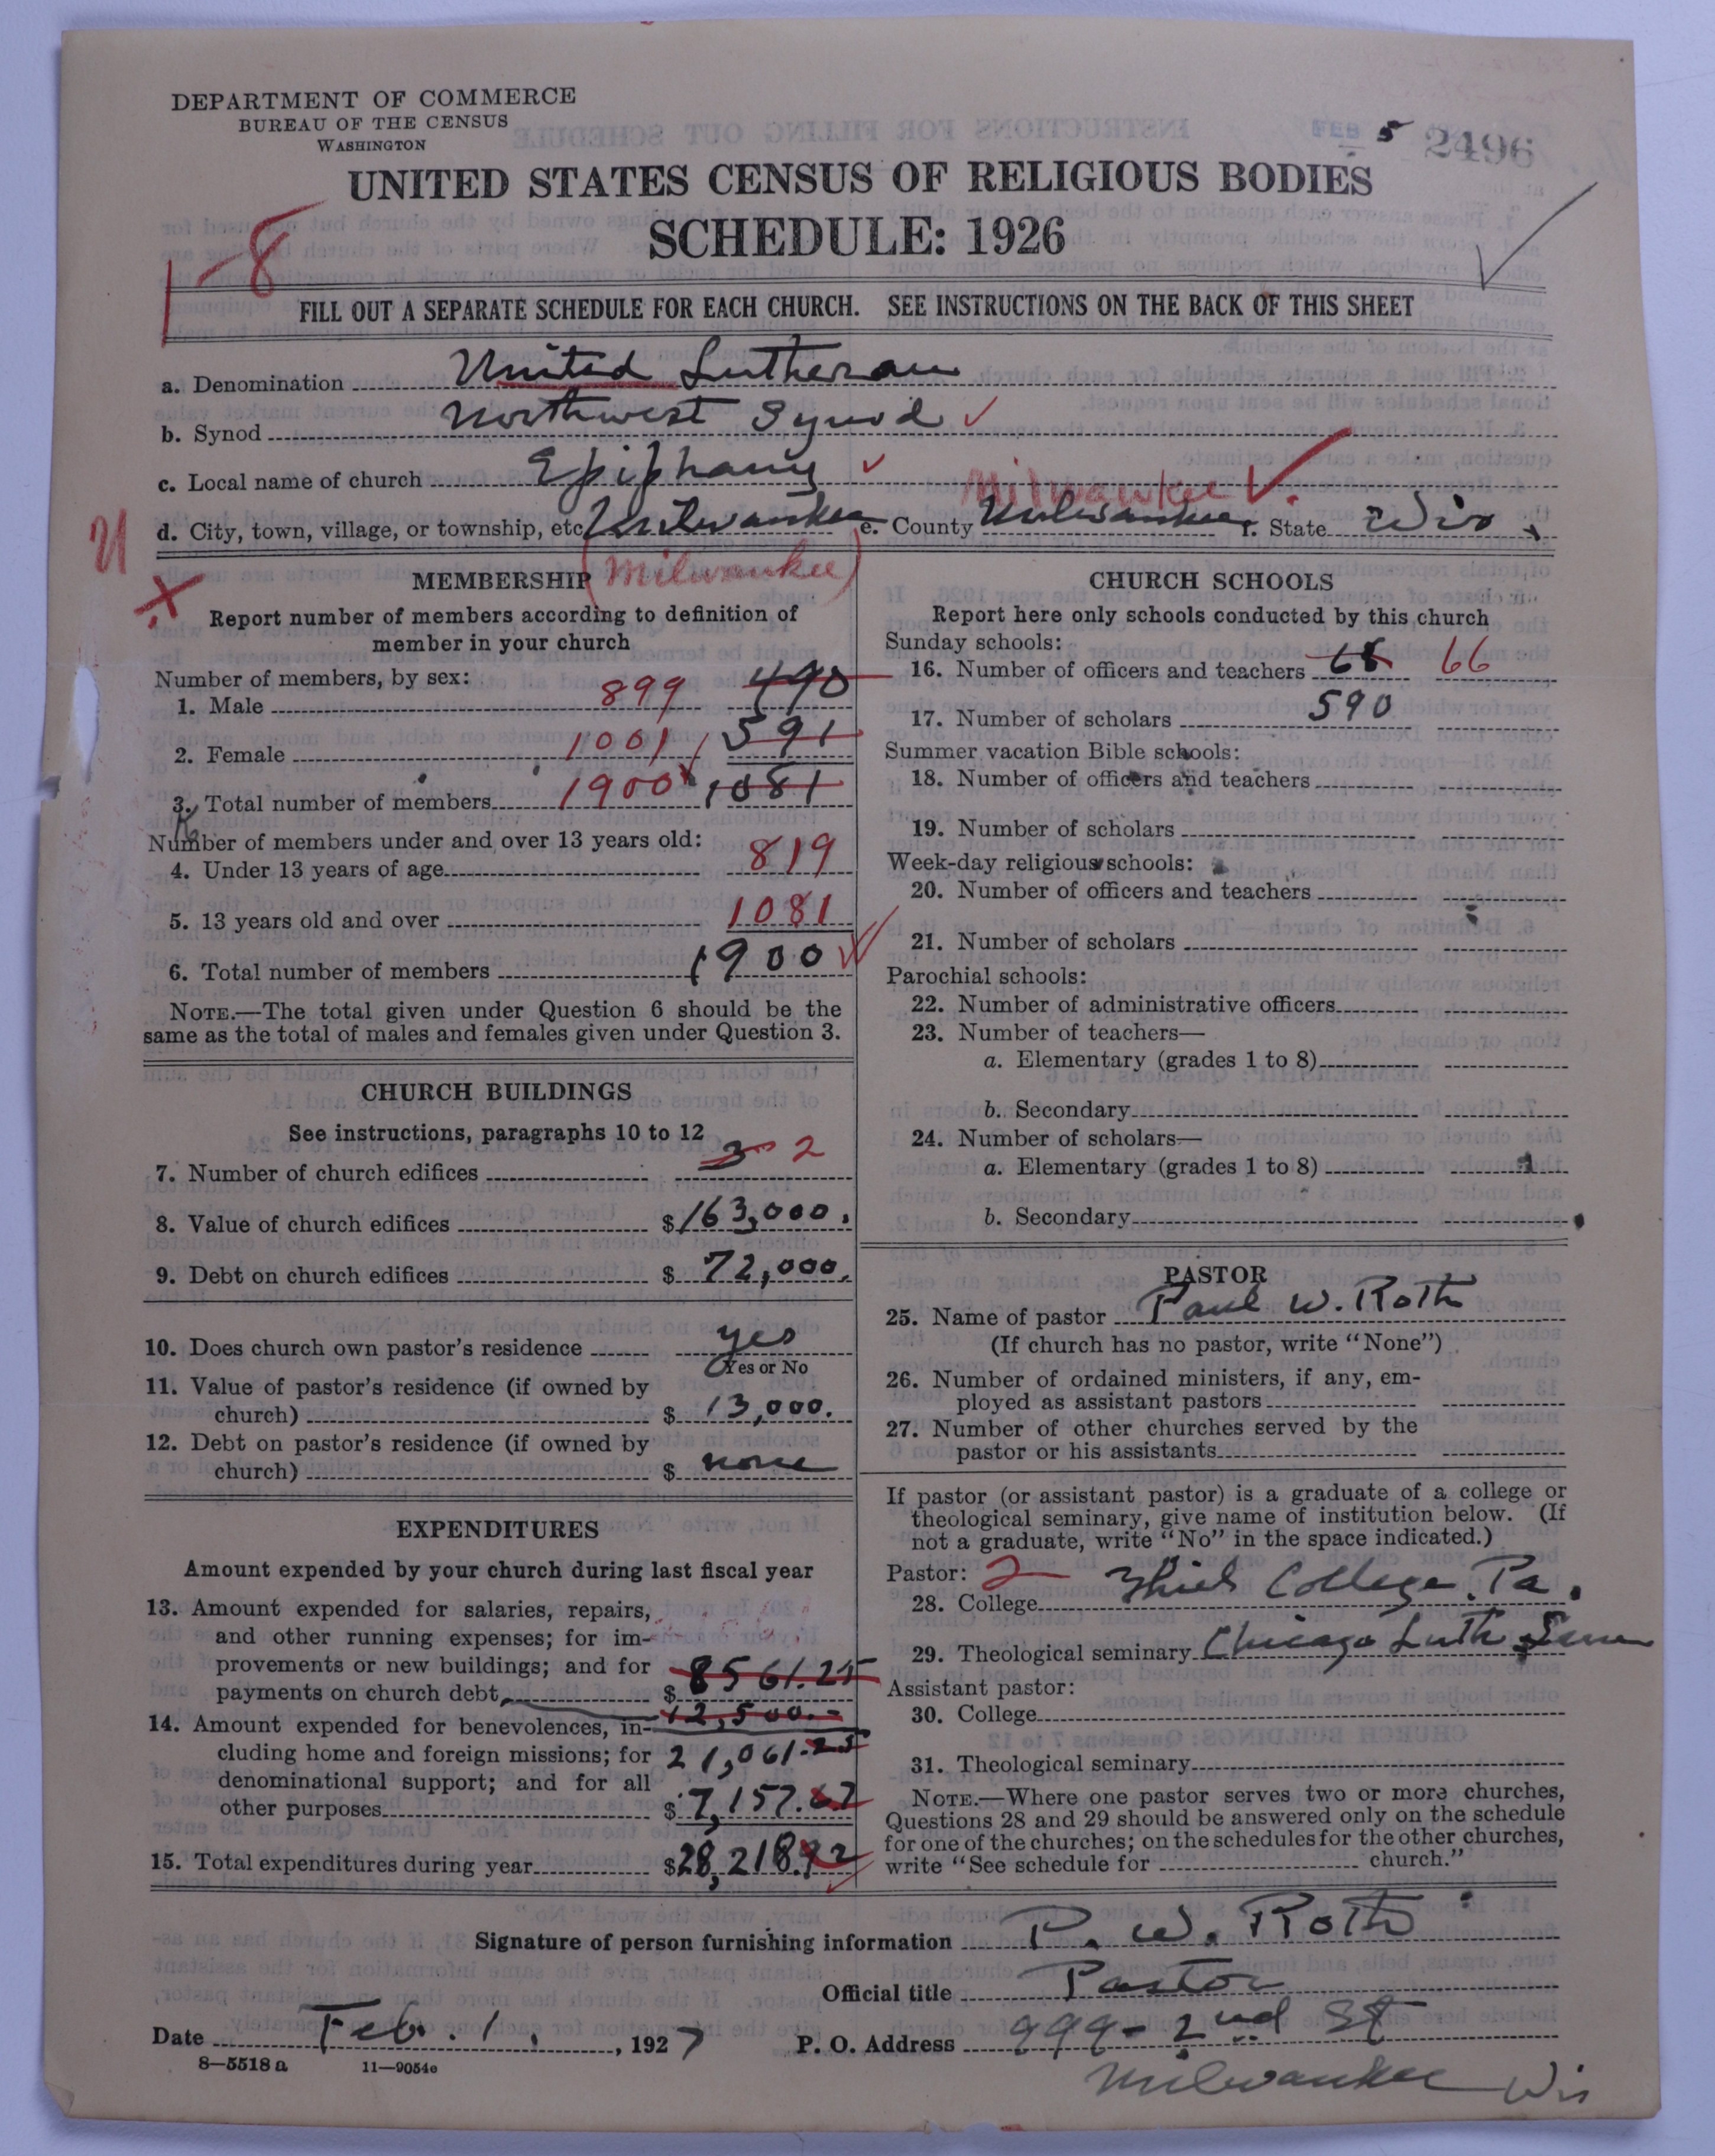 DEPARTMENT OF COMMERCE
BUREAU OF THE CENSUS
WASHINGTON
FEB 5 2496
UNITED STATES CENSUS OF RELIGIOUS BODIES
SCHEDULE: 1926
1-8
FILL OUT A SEPARATE SCHEDULE FOR EACH CHURCH. SEE INSTRUCTIONS ON THE BACK OF THIS SHEET
a. Denomination United Lutheran
b. Synod Northwest Synod
c. Local name of church Epiphany
Milwaukee
d. City, town, village, or township, etc. Milwaukee e. County Milwaukee f. State Wis.
(Milwaukee)
MEMBERSHIP
Report number of members according to definition of
member in your church
Number of members, by sex:
1. Male 899 490
2. Female 1001 591
3. Total number of members 1900 1081
Number of members under and over 13 years old:
4. Under 13 years of age 819
5. 13 years old and over 1081
6. Total number of members 1900
NOTE.—The total given under Question 6 should be the
same as the total of males and females given under Question 3.
CHURCH BUILDINGS
See instructions, paragraphs 10 to 12
7. Number of church edifices 3 2
8. Value of church edifices $163,000.
9. Debt on church edifices $72,000.
10. Does church own pastor's residence yes
Yes or No
11. Value of pastor's residence (if owned by
church) $13,000.
12. Debt on pastor's residence (if owned by
church) $none
EXPENDITURES
Amount expended by your church during last fiscal year
13. Amount expended for salaries, repairs,
and other running expenses; for im-
provements or new buildings; and for
payments on church debt $8561.25
12,500.-
14. Amount expended for benevolences, in-
cluding home and foreign missions; for 21,061.25
denominational support; and for all
other purposes $7,157.67
15. Total expenditures during year $28,218.92
CHURCH SCHOOLS
Report here only schools conducted by this church
Sunday schools:
16. Number of officers and teachers 68 66
17. Number of scholars 590
Summer vacation Bible schools:
18. Number of officers and teachers
19. Number of scholars
Week-day religious schools:
20. Number of officers and teachers
21. Number of scholars
Parochial schools:
22. Number of administrative officers
23. Number of teachers—
a. Elementary (grades 1 to 8)
b. Secondary
24. Number of scholars—
a. Elementary (grades 1 to 8)
b. Secondary
PASTOR
25. Name of pastor Paul W. Roth
(If church has no pastor, write "None")
26. Number of ordained ministers, if any, em-
ployed as assistant pastors
27. Number of other churches served by the
pastor or his assistants
If pastor (or assistant pastor) is a graduate of a college or
theological seminary, give name of institution below. (If
not a graduate, write "No" in the space indicated.)
Pastor: 2
28. College Thiel College Pa.
29. Theological seminary Chicago Luth Sem
Assistant pastor:
30. College
31. Theological seminary
NOTE.—Where one pastor serves two or more churches,
Questions 28 and 29 should be answered only on the schedule
for one of the churches; on the schedules for the other churches,
write "See schedule for church."
Signature of person furnishing information P. W. Roth
Official title Pastor
Date Feb. 1, 1927 P. O. Address 999-2nd St
8-5518a 11-9054c
Milwaukee Wis